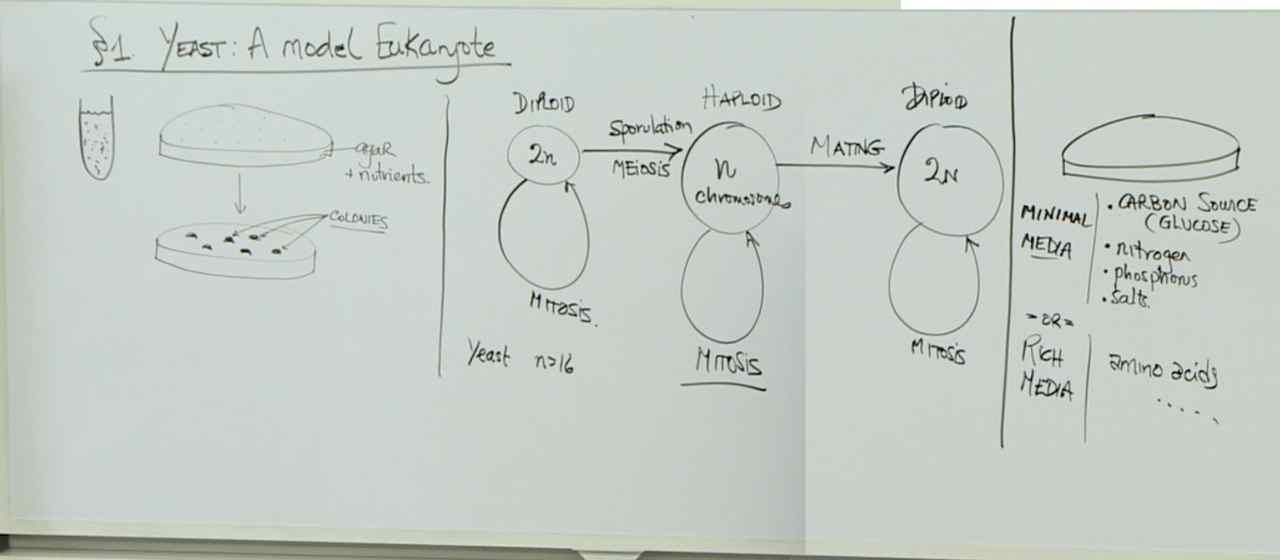 §1. YEAST: A model Eukaryote
agar
+ nutrients.
COLONIES
DIPLOID
2n
MITOSIS.
Sporulation
MEIOSIS
HAPLOID
n
chromosomes
MITOSIS
MATNG
DIPLOID
2N
MITOSIS
Yeast n=16
MINIMAL
MEDIA
• CARBON SOURCE
(GLUCOSE)
• nitrogen
• phosphorus
• salts.
= OR =
RICH
MEDIA
amino acids
.....